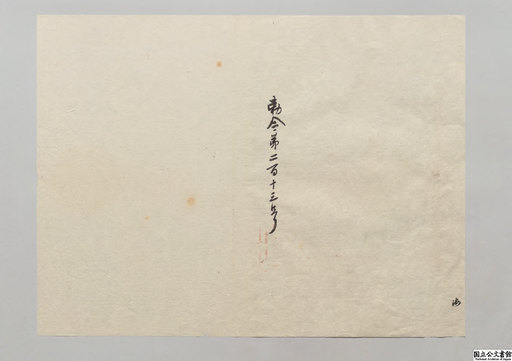 勅令第二百十三号
国立公文書館
National Archives of Japan